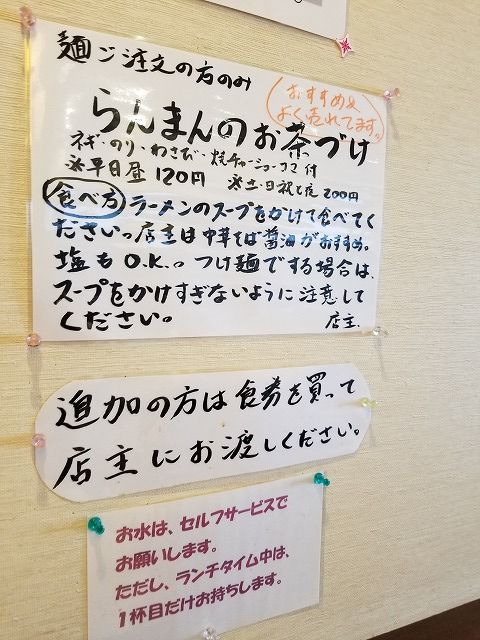 麺ご注文の方のみ
おすすめ&
よく売れてます。
らんまんのお茶づけ
ネギ・のり・わさび・焼チャーシュー・ゴマ付
※平日昼120円 ※土・日祝と夜200円
食べ方 ラーメンのスープをかけて食べてく
ださいっ店主は中華そば醤油がおすすめ。
塩もO.K.。つけ麺でする場合は、
スープをかけすぎないように注意して
ください。 店主.
追加の方は食券を買って
店主にお渡しください。
お水は、セルフサービスで
お願いします。
ただし、ランチタイム中は、
1杯目だけお持ちします。